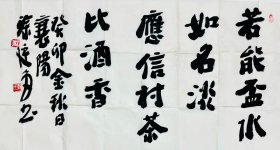 若能盃水
如名淡
應信村茶
比酒香
癸卯金秋日
襄陽